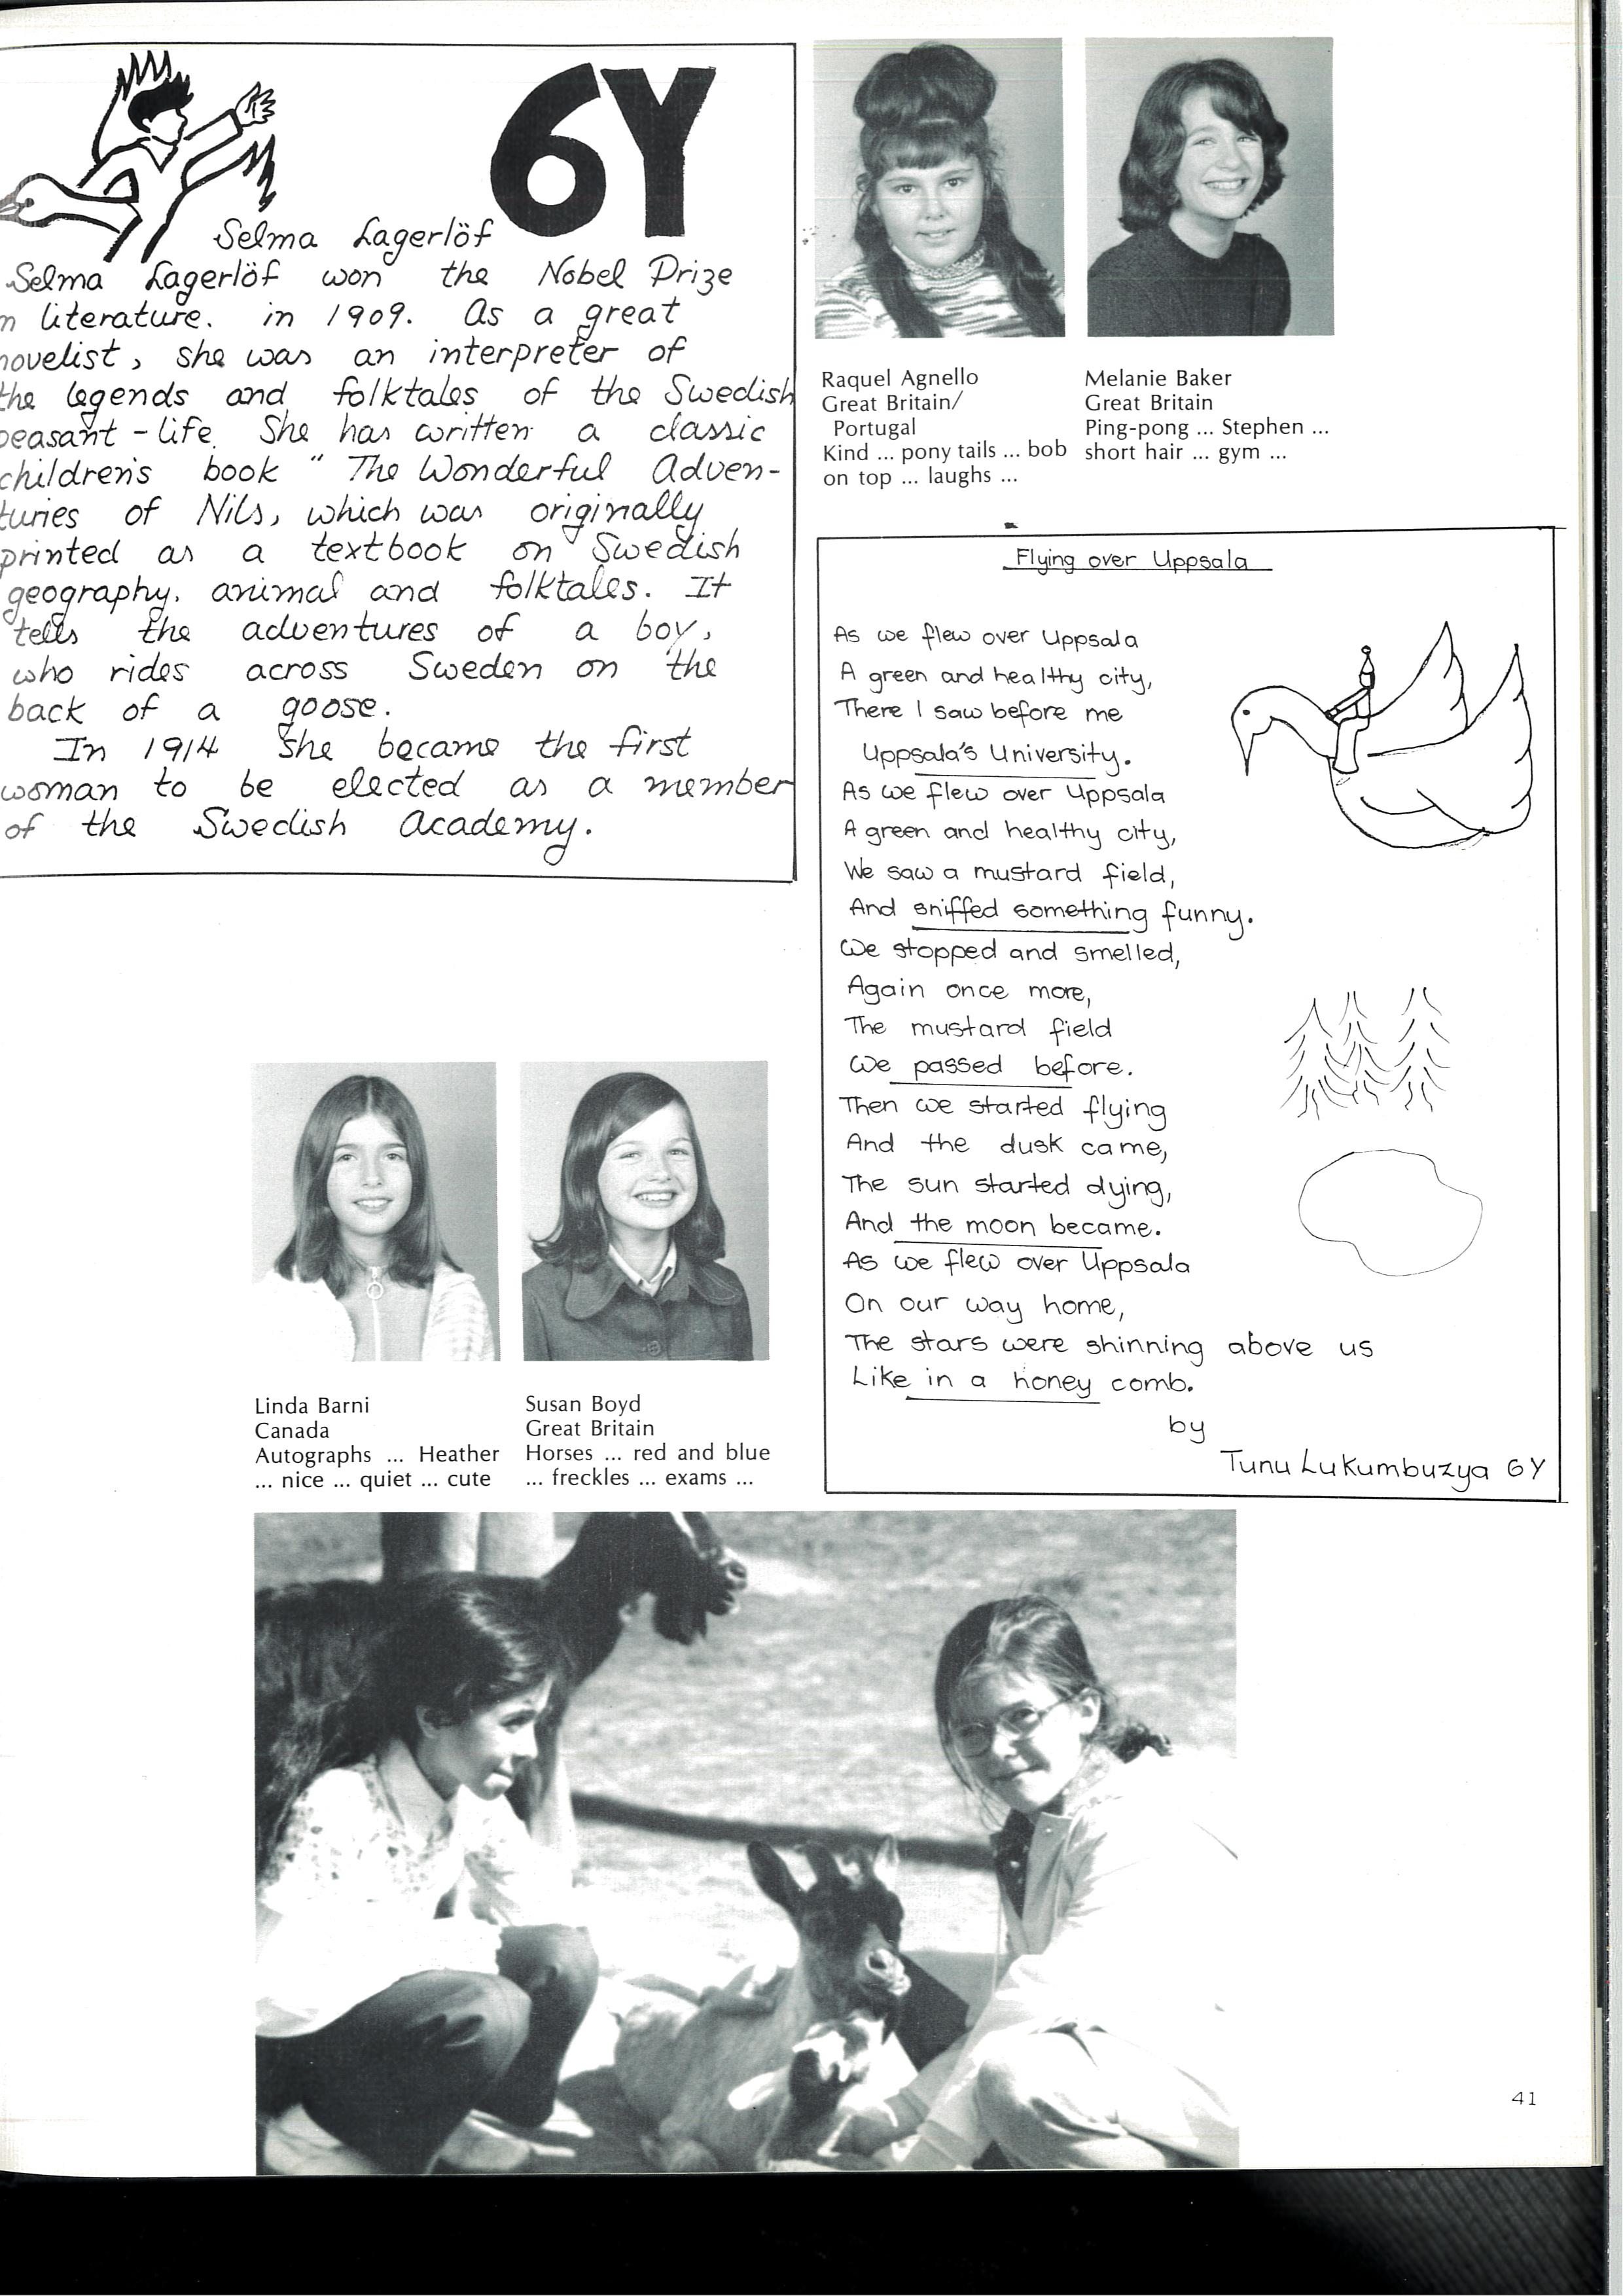 6Y
Selma Lagerlöf
Selma Lagerlöf won the Nobel Prize
n literature. in 1909. As a great
novelist, she was an interpreter of
the legends and folktales of the Swedish
peasant-life. She has written a classic
children's book "The Wonderful Adven-
turies of Nils, which was originally
printed as a textbook on Swedish
geography, animal and folktales. It
tells the adventures of a boy,
who rides across Sweden on the
back of a goose.
In 1914 she became the first
woman to be elected as a member
of the Swedish Academy.
Raquel Agnello
Great Britain/
Portugal
Kind ... pony tails ... bob
on top ... laughs ...
Melanie Baker
Great Britain
Ping-pong ... Stephen ...
short hair ... gym ...
Flying over Uppsala
As we flew over Uppsala
A green and healthy city,
There I saw before me
Uppsala's University.
As we flew over Uppsala
A green and healthy city,
We saw a mustard field,
And sniffed something funny.
We stopped and smelled,
Again once more,
The mustard field
We passed before.
Then we started flying
And the dusk came,
The sun started dying,
And the moon became.
As we flew over Uppsala
On our way home,
The stars were shinning above us
Like in a honey comb.
by
Tunu Lukumbuzya 6Y
Linda Barni
Canada
Autographs ... Heather
... nice ... quiet ... cute
Susan Boyd
Great Britain
Horses ... red and blue
... freckles ... exams ...
41